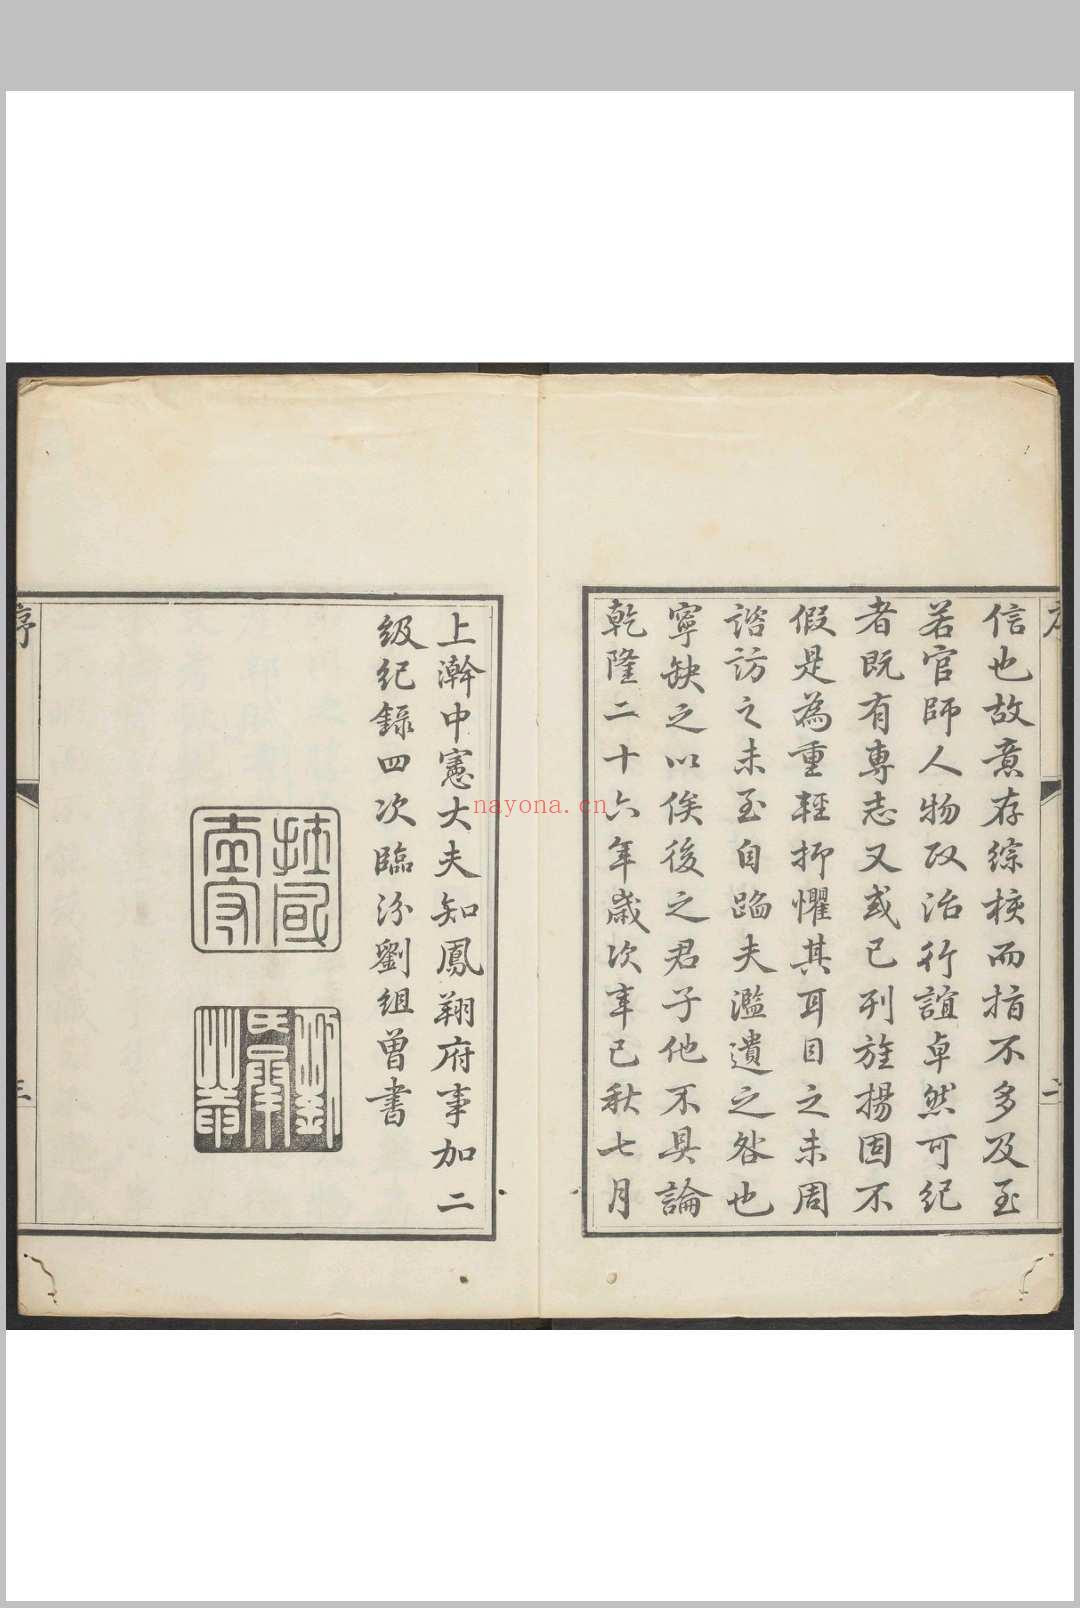 信也故意存綜核而指不多及至
若官師人物政治行誼卓然可紀
者既有專志又或已刊旌揚固不
假是為重輕抑懼其耳目之未周
諮訪之未至自蹈夫濫遺之咎也
寧缺之以俟後之君子他不具論
乾隆二十六年歲次辛巳秋七月
上澣中憲大夫知鳳翔府事加二
級紀錄四次臨汾劉組曾書
序
三
nayona.cn